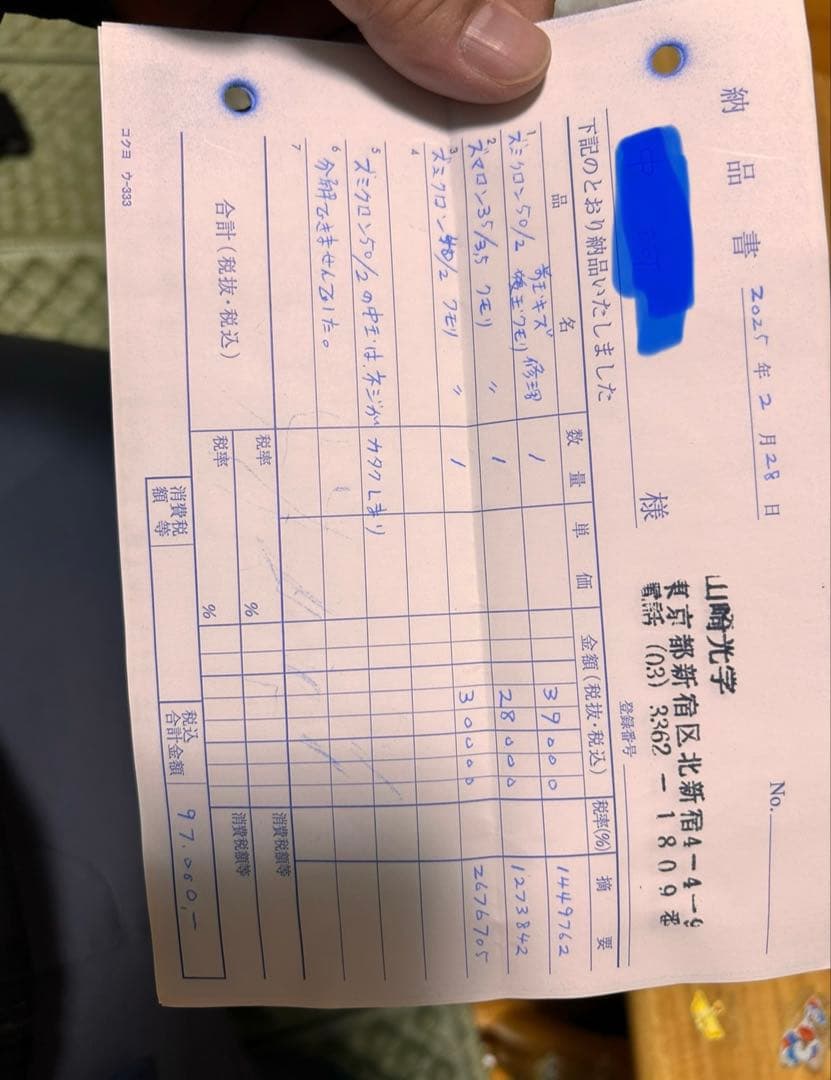 納品書 2025年2月28日
No.
様
山崎光学
東京都新宿区北新宿4-4-9
電話 (03) 3362-1809番
登録番号
下記のとおり納品いたしました
品名 数量 単価 金額(税抜・税込) 税率(%) 摘要
1 ズミクロン50/2 前玉キズ 後玉クモリ 修理 1 39000 1449762
2 ズマロン35/3.5 クモリ 〃 1 28000 1273842
3 ズミクロン 90/2 クモリ 〃 1 30000 2676705
4
5 ズミクロン50/2の中玉は、ネジがカタクしまり
6 分解できませんでした。
7
合計(税抜・税込) 税率 % 消費税額等
税率 % 消費税額等
消費税額等 税込合計金額 97,000,-
コクヨ ウ-333